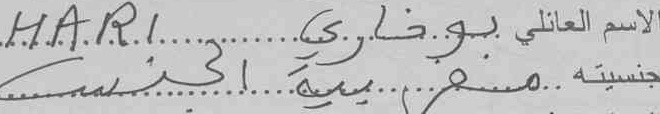 الاسم العائلي بوخاري HARI
جنسيته مغربية الجنس